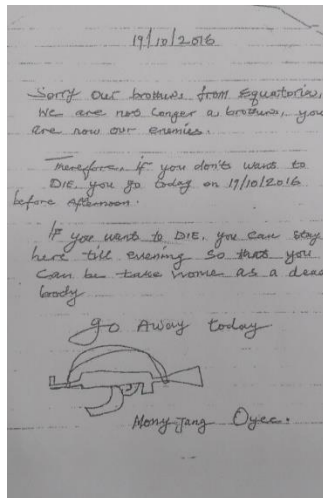 19/10/2016
Sorry our brothers from Equatoria,
We are not longer a brothers, you
are now our enemies.
Therefore, if you don't want to
DIE, you go today on 19/10/2016
before Afternoon.
If you want to DIE, you can stay
here till evening so that you
can be take home as a dead
body
go Away today
Mony-Jang Oyee.